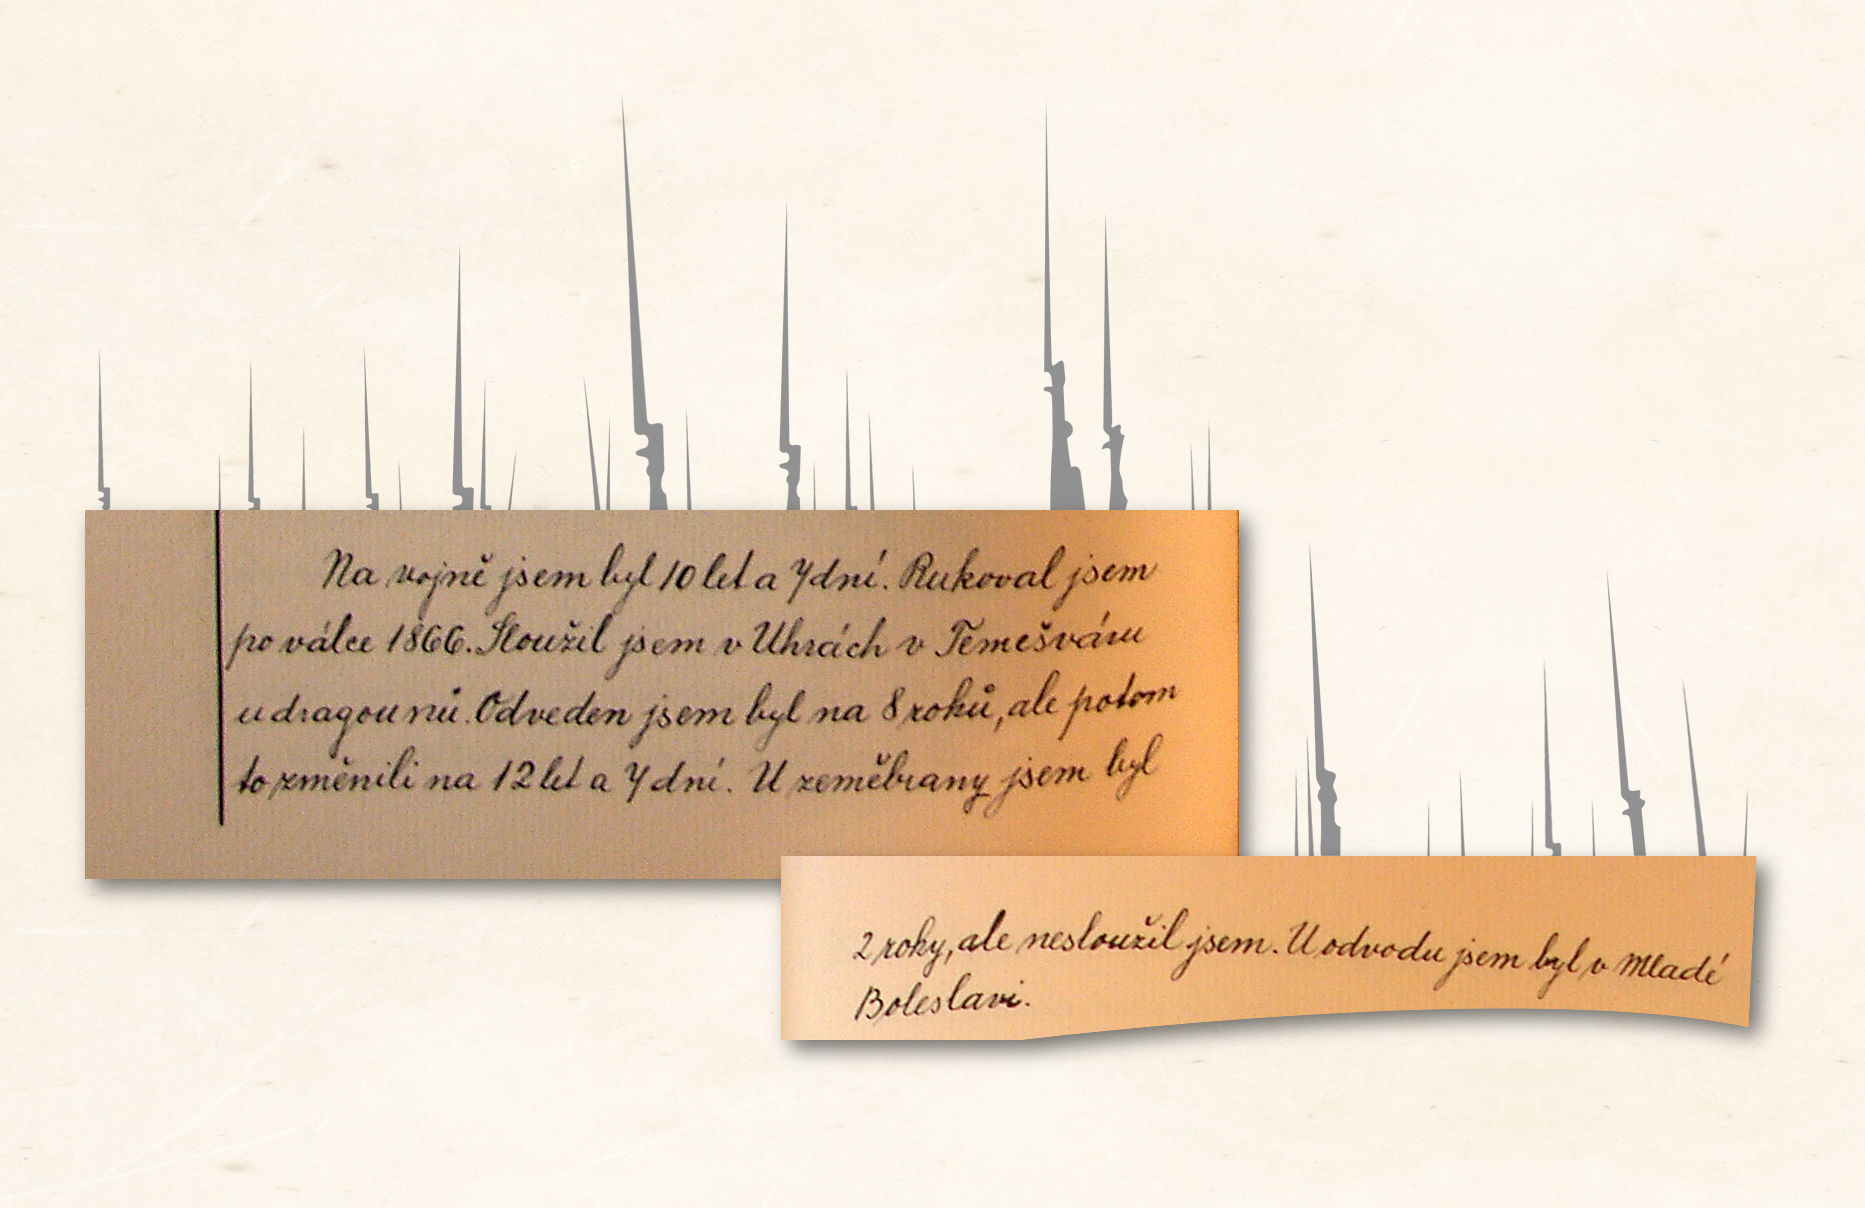 Na vojně jsem byl 10 let a 7 dní. Rukoval jsem
po válce 1866. Sloužil jsem v Uhrách v Temešváru
u dragounů. Odveden jsem byl na 8 roků, ale potom
to změnili na 12 let a 7 dní. U zeměbrany jsem byl
2 roky, ale nesloužil jsem. U odvodu jsem byl v Mladé
Boleslavi.